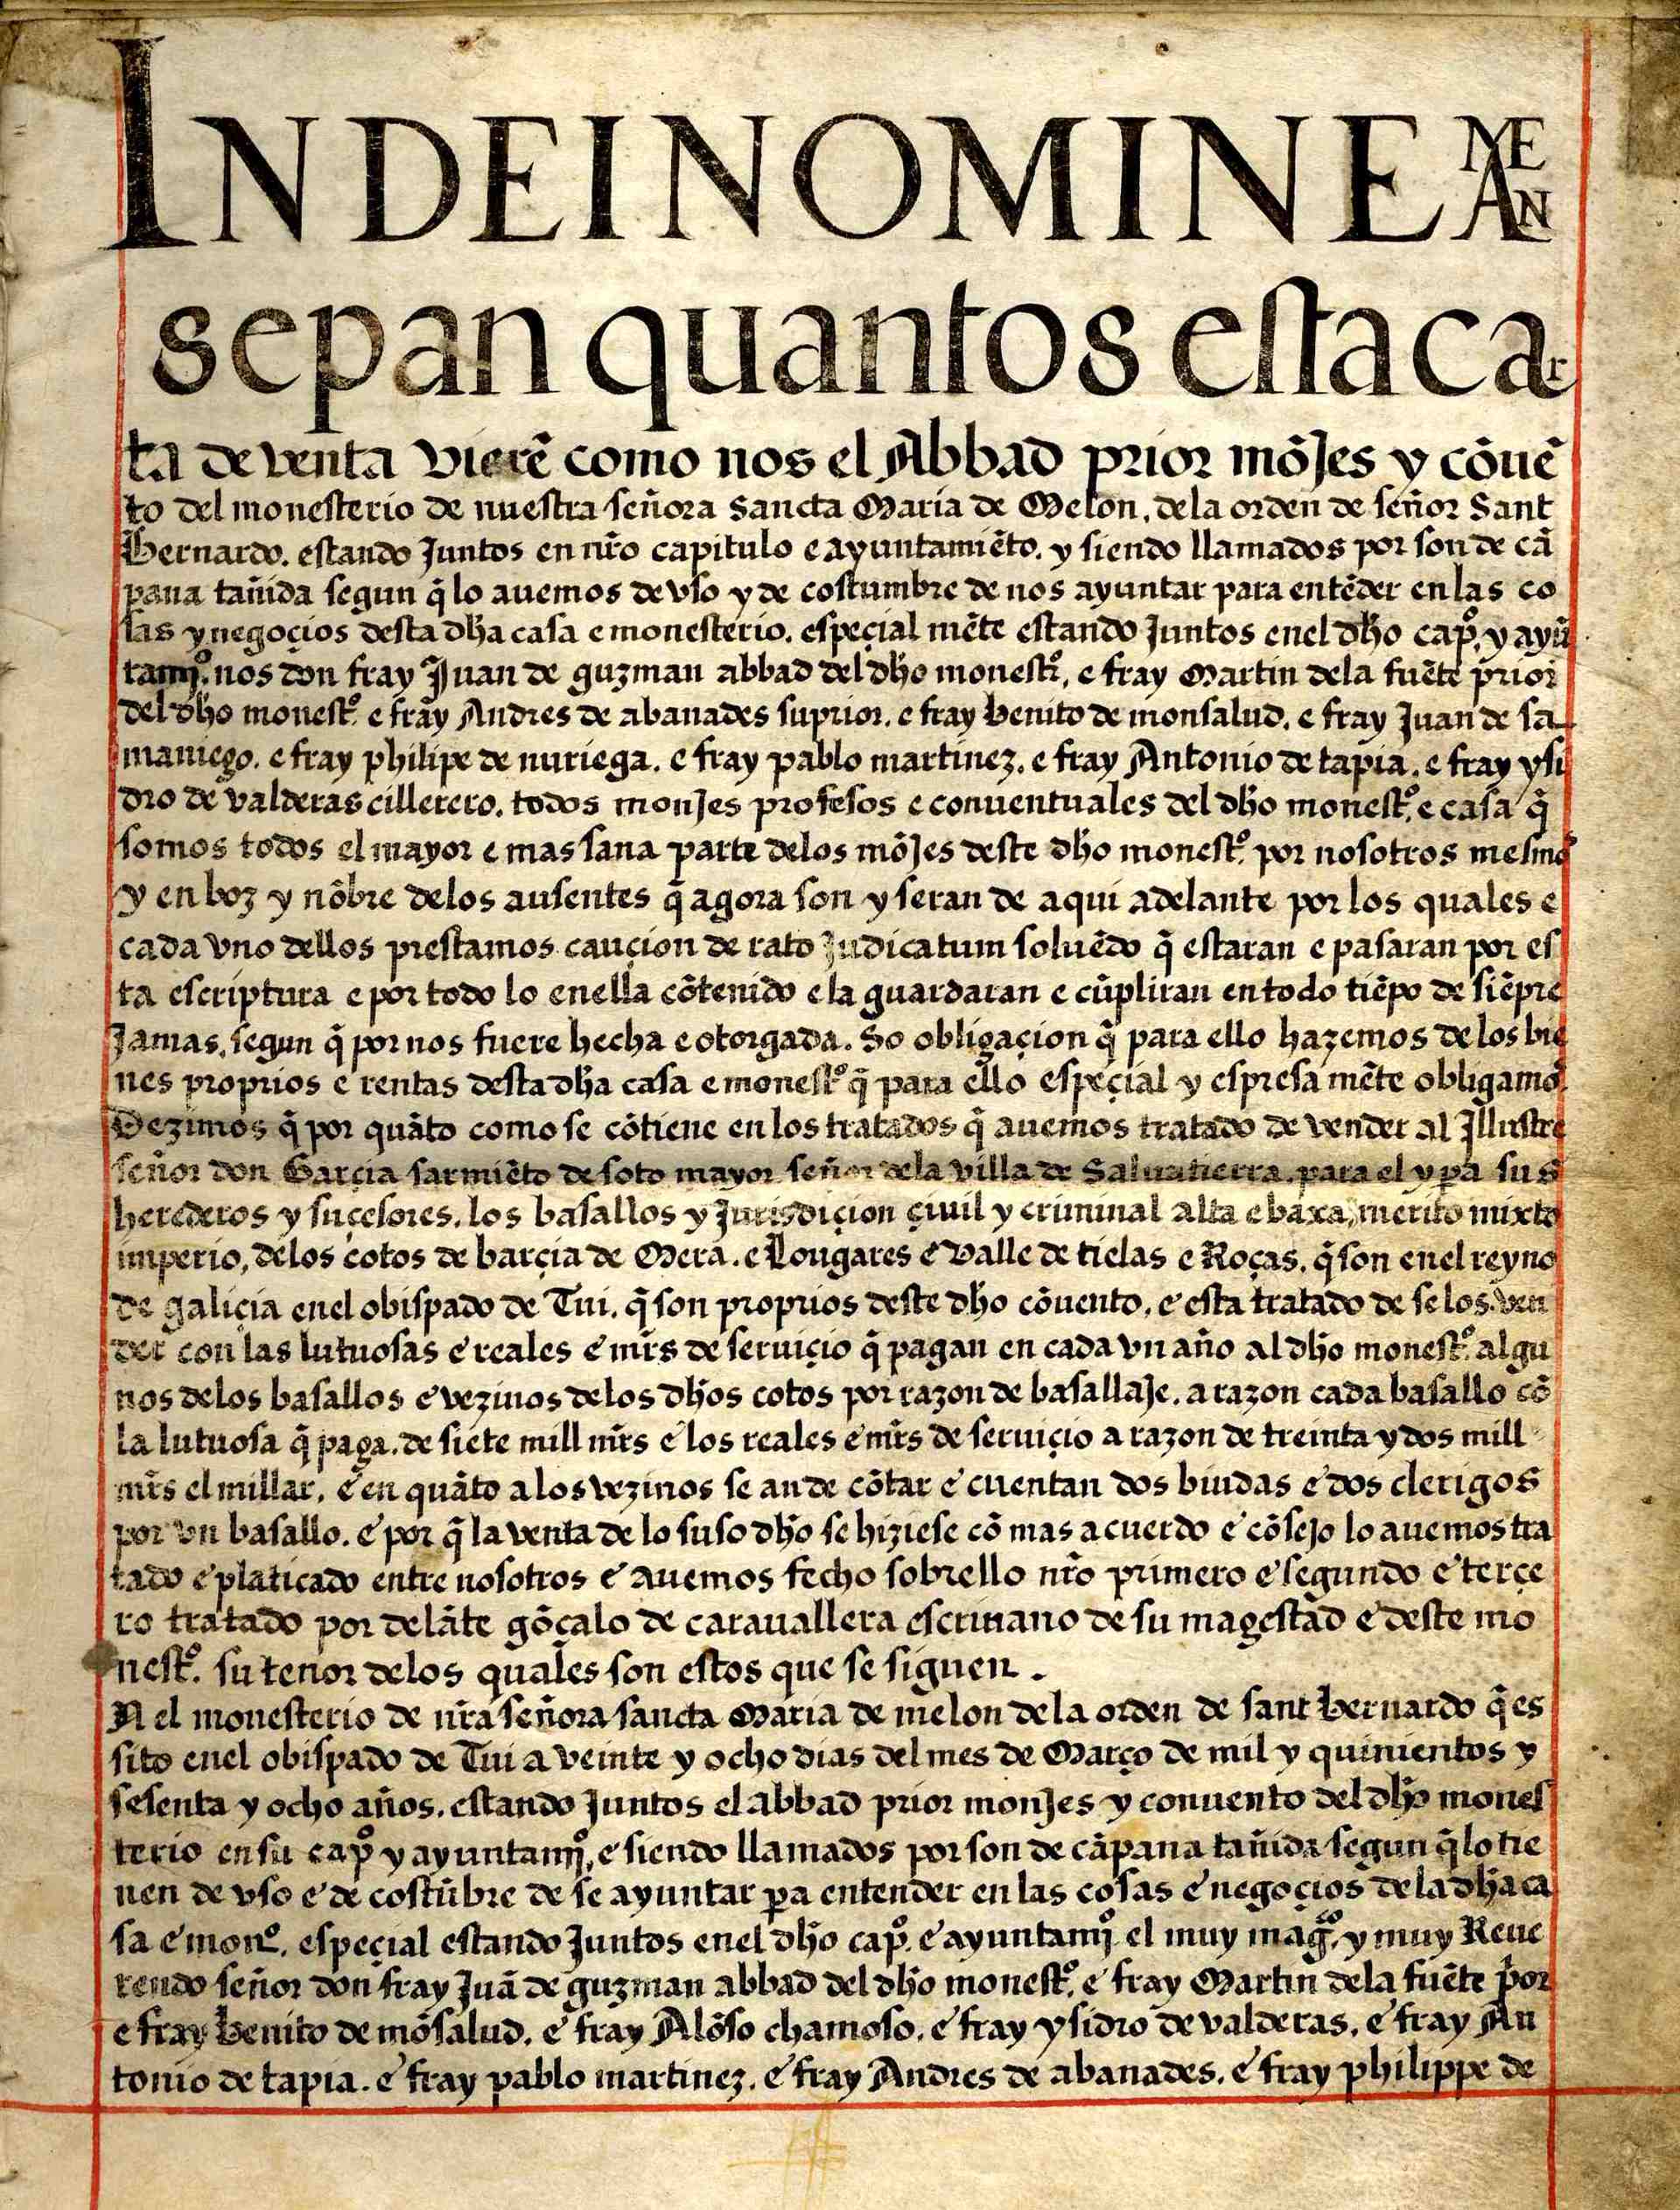 IN DEI NOMINE AMEN
sepan quantos esta car
ta de venta vierē como nos el Abbad prior mōjes y cōuē
to del monesterio de nuestra señora Sancta Maria de Melon, dela orden de señor Sant
Bernardo. estando Juntos en nr̄o capitulo e ayuntamiēto. y siendo llamados por son de cā
pana tañida segun q̄ lo auemos de vso y de costumbre de nos ayuntar para entēder en las co
sas y negoçios desta dh̄a casa e monesterio. espeçial mēte estando Juntos enel dh̄o capº. y ayū
tamjº. nos don fray Juan de guzman abbad del dh̄o monestº, e fray Martin dela fuēte prior
del dh̄o monestº. e fray Andres de abanades suprior. e fray benito de monsalud. e fray Juan de sa
maniego. e fray philipe de nuriega. e fray pablo martinez. e fray Antonio de tapia. e fray ysi
dro de valderas cillerero. todos monjes profesos e conuentuales del dh̄o monestº. e casa q̄
somos todos el mayor e mas sana parte delos mōjes deste dh̄o monestº. por nosotros mesmos
y en boz y nōbre delos ausentes q̄ agora son y seran de aqui adelante por los quales e
cada vno dellos prestamos cauçion de rato Judicatum soluēdo q̄ estaran e pasaran por es
ta escriptura e por todo lo enella cōtenido e la guardaran e cūpliran en todo tiēpo de siēpre
Jamas, segun q̄ por nos fuere hecha e otorgada. So obligaçion q̄ para ello hazemos de los bie
nes proprios e rentas desta dh̄a casa e monestº q̄ para ello espeçial y espresa mēte obligamos
Dezimos q̄ por quāto como se cōtiene en los tratados q̄ auemos tratado de vender al Illustre
señor don Garçia sarmiēto de soto mayor señor dela villa de Saluatierra. para el y pa sus
herederos y suçesores. los basallos y Jurisdiçion çiuil y criminal alta e baxa, merito mixto
imperio, delos cotos de barçia de Mera. e Lougares e valle de tielas e Roças. q̄ son enel reyno
de galiçia enel obispado de Tui. q̄ son proprios deste dh̄o cōuento. e esta tratado de se los ven
der con las lutuosas e reales e mr̄s de seruiçio q̄ pagan en cada vn año al dh̄o monestº. algu
nos delos basallos e vezinos delos dh̄os cotos por razon de basallaje. a razon cada basallo cō
la lutuosa q̄ paga. de siete mill mr̄s e los reales e mr̄s de seruiçio a razon de treinta y dos mill
mr̄s el millar. e en quāto a los vezinos se an de cōtar e cuentan dos biudas e dos clerigos
por vn basallo. e por q̄ la venta de lo suso dh̄o se hiziese cō mas acuerdo e cōsejo lo auemos tra
tado e platicado entre nosotros e auemos fecho sobrello nr̄o primero e segundo e terçe
ro tratado por delāte gōçalo de carauallera escriuano de su magestad e deste mo
nestº. su tenor delos quales son estos que se siguen.
N el monesterio de nr̄a señora sancta Maria de melon dela orden de sant bernardo q̄ es
sito enel obispado de Tui a veinte y ocho dias del mes de Março de mil y quinientos y
sesenta y ocho años. estando Juntos el abbad prior monjes y conuento del dh̄o mones
terio en su capº y ayuntamjº, e siendo llamados por son de cāpana tañida segun q̄ lo tie
nen de vso e de costūbre de se ayuntar pa entender en las cosas e negoçios dela dh̄a ca
sa e monº. espeçial estando Juntos enel dh̄o capº. e ayuntamjº el muy maḡco. y muy Reue
rendo señor don fray Juā de guzman abbad del dh̄o monestº. e fray Martin dela fuēte prior
e fray benito de mōsalud. e fray Alōso chamoso. e fray ysidro de valderas. e fray An
tonio de tapia. e fray pablo martinez. e fray Andres de abanades. e fray philippe de